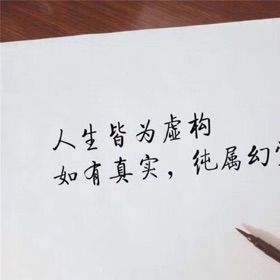 人生皆为虚构
如有真实，纯属幻